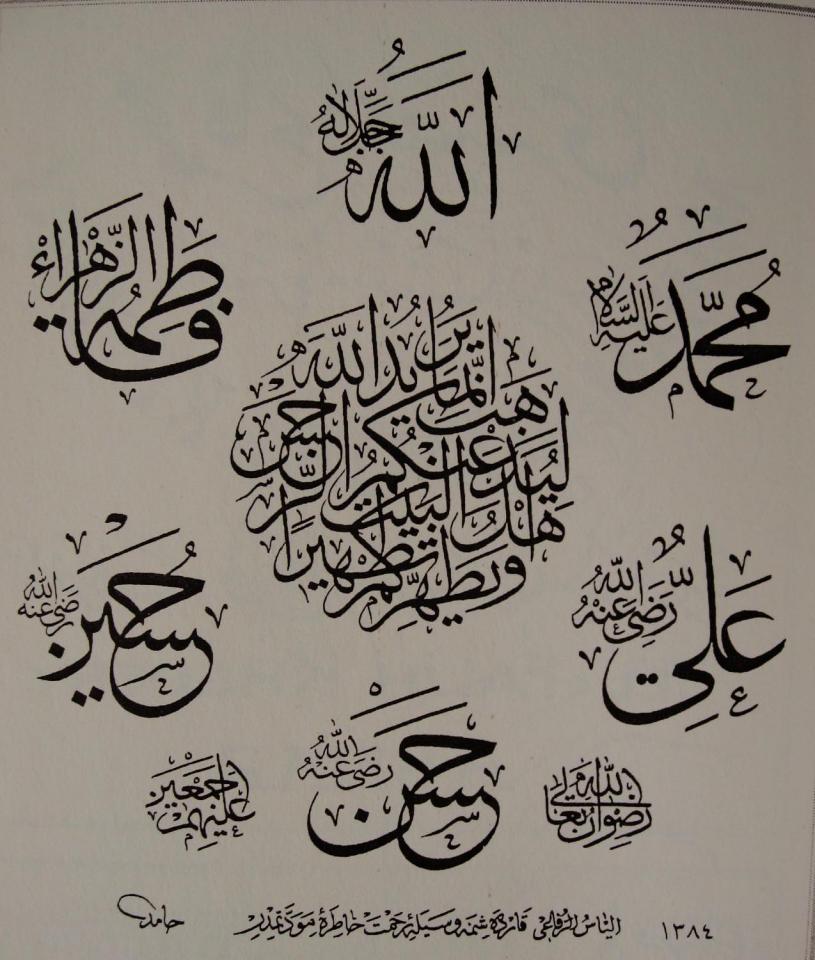 الله جل جلاله
محمد عليه السلام
فاطمة الزهراء
إنما يريد الله
ليذهب عنكم الرجس
أهل البيت
ويطهركم تطهيرا
علي رضي الله عنه
حسين رضي الله عنه
حسن رضي الله عنه
رضوان الله تعالى
عليهم اجمعين
١٣٨٤ الياس الرفاعي قارده شمه وسيلۀ رحمت خاطرۀ مودتمدر حامد